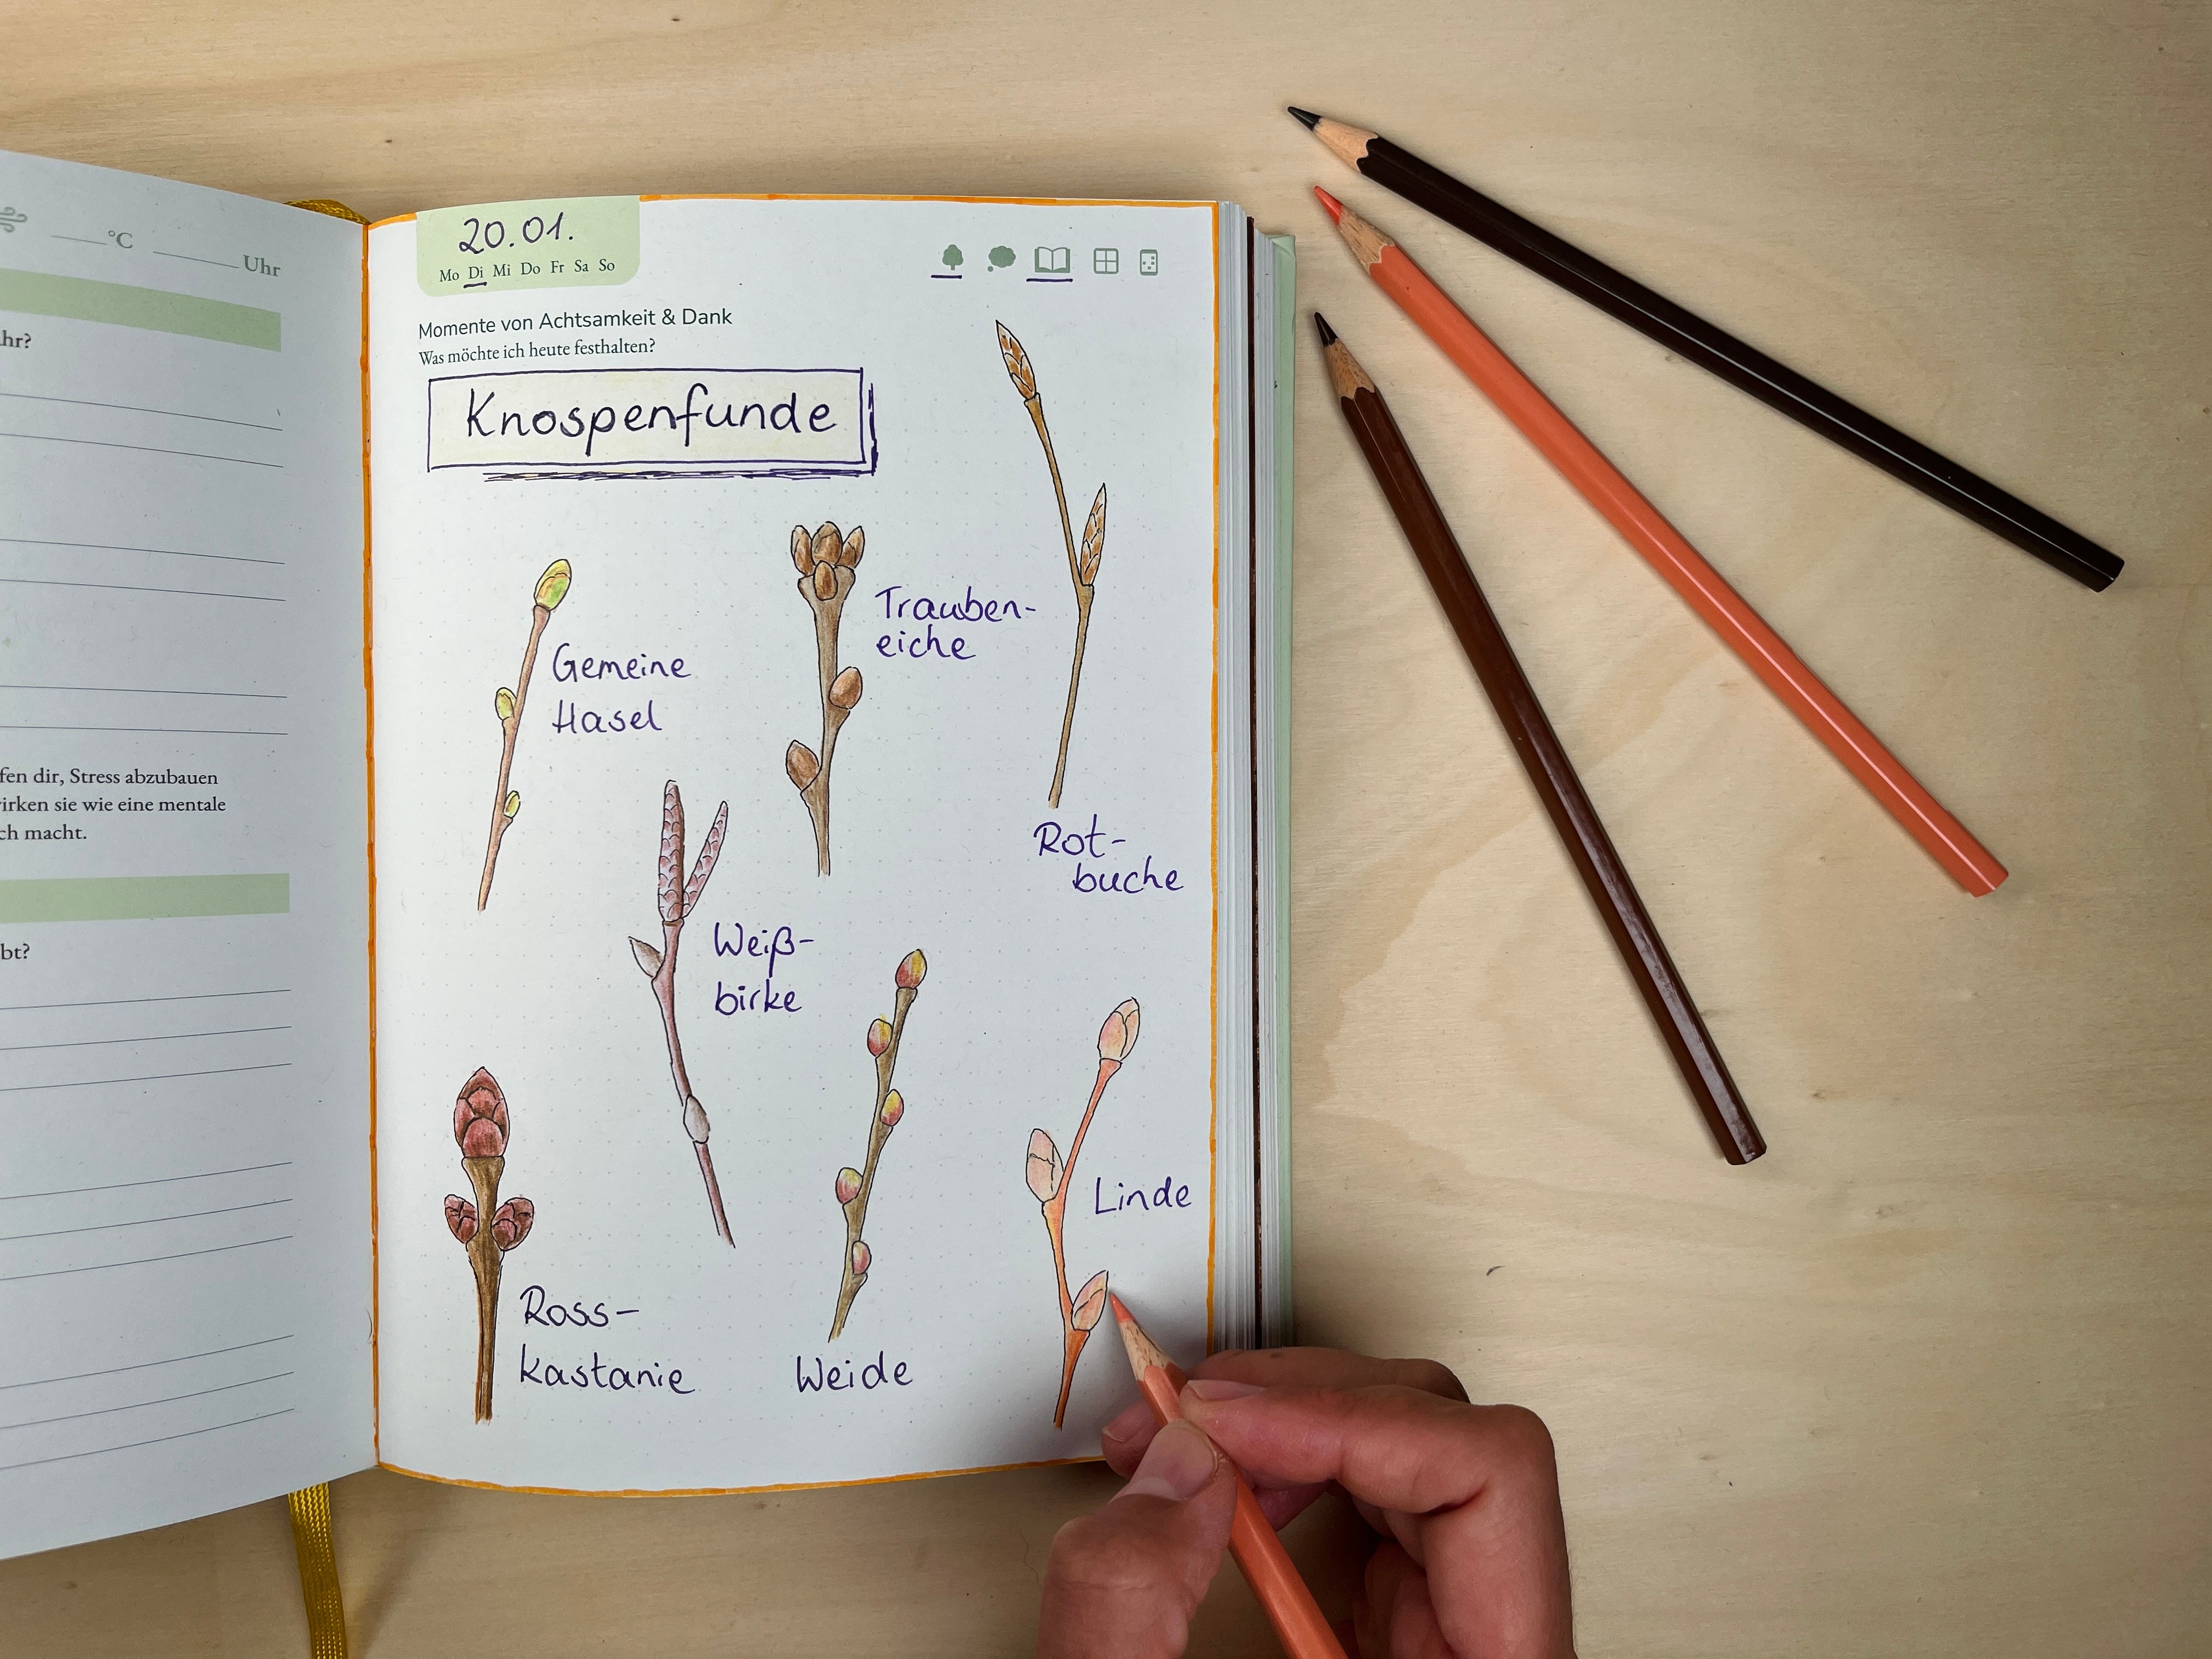 °C Uhr
hr?
fen dir, Stress abzubauen
irken sie wie eine mentale
ch macht.
bt?
20.01.
Mo Di Mi Do Fr Sa So
Momente von Achtsamkeit & Dank
Was möchte ich heute festhalten?
Knospenfunde
Gemeine
Hasel
Trauben-
eiche
Rot-
buche
Weiß-
birke
Ross-
kastanie
Weide
Linde